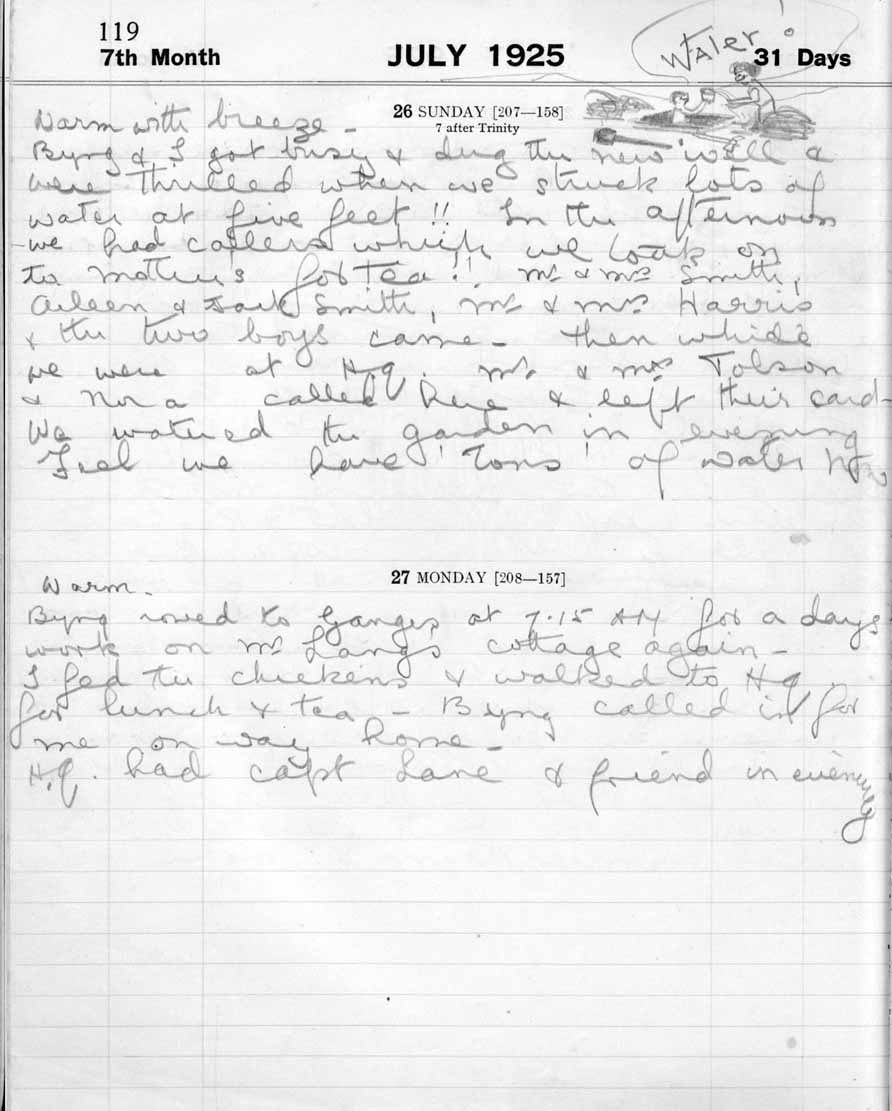 119
7th Month JULY 1925 31 Days
Water!
26 SUNDAY [207—158]
7 after Trinity
Warm with breeze -
Byng & I got busy & dug the new well &
were thrilled when we struck lots of
water at five feet!! In the afternoon
we had callers which we took on
to mother's for Tea!! Mr & Mrs Smith,
Aileen & Jack Smith, Mr & Mrs Harris
& the two boys came - then while
we were at H.Q. Mr. & Mrs Tolson
& Nora called here & left their card -
We watered the garden in evening
Feel we have 'Tons' of water now
27 MONDAY [208—157]
Warm.
Byng rowed to Ganges at 7.15 AM for a days
work on Mr Langs cottage again -
I fed the chickens & walked to H.Q.
for lunch & tea - Byng called in for
me on way home -
H.Q. had Capt Lane & friend in evening